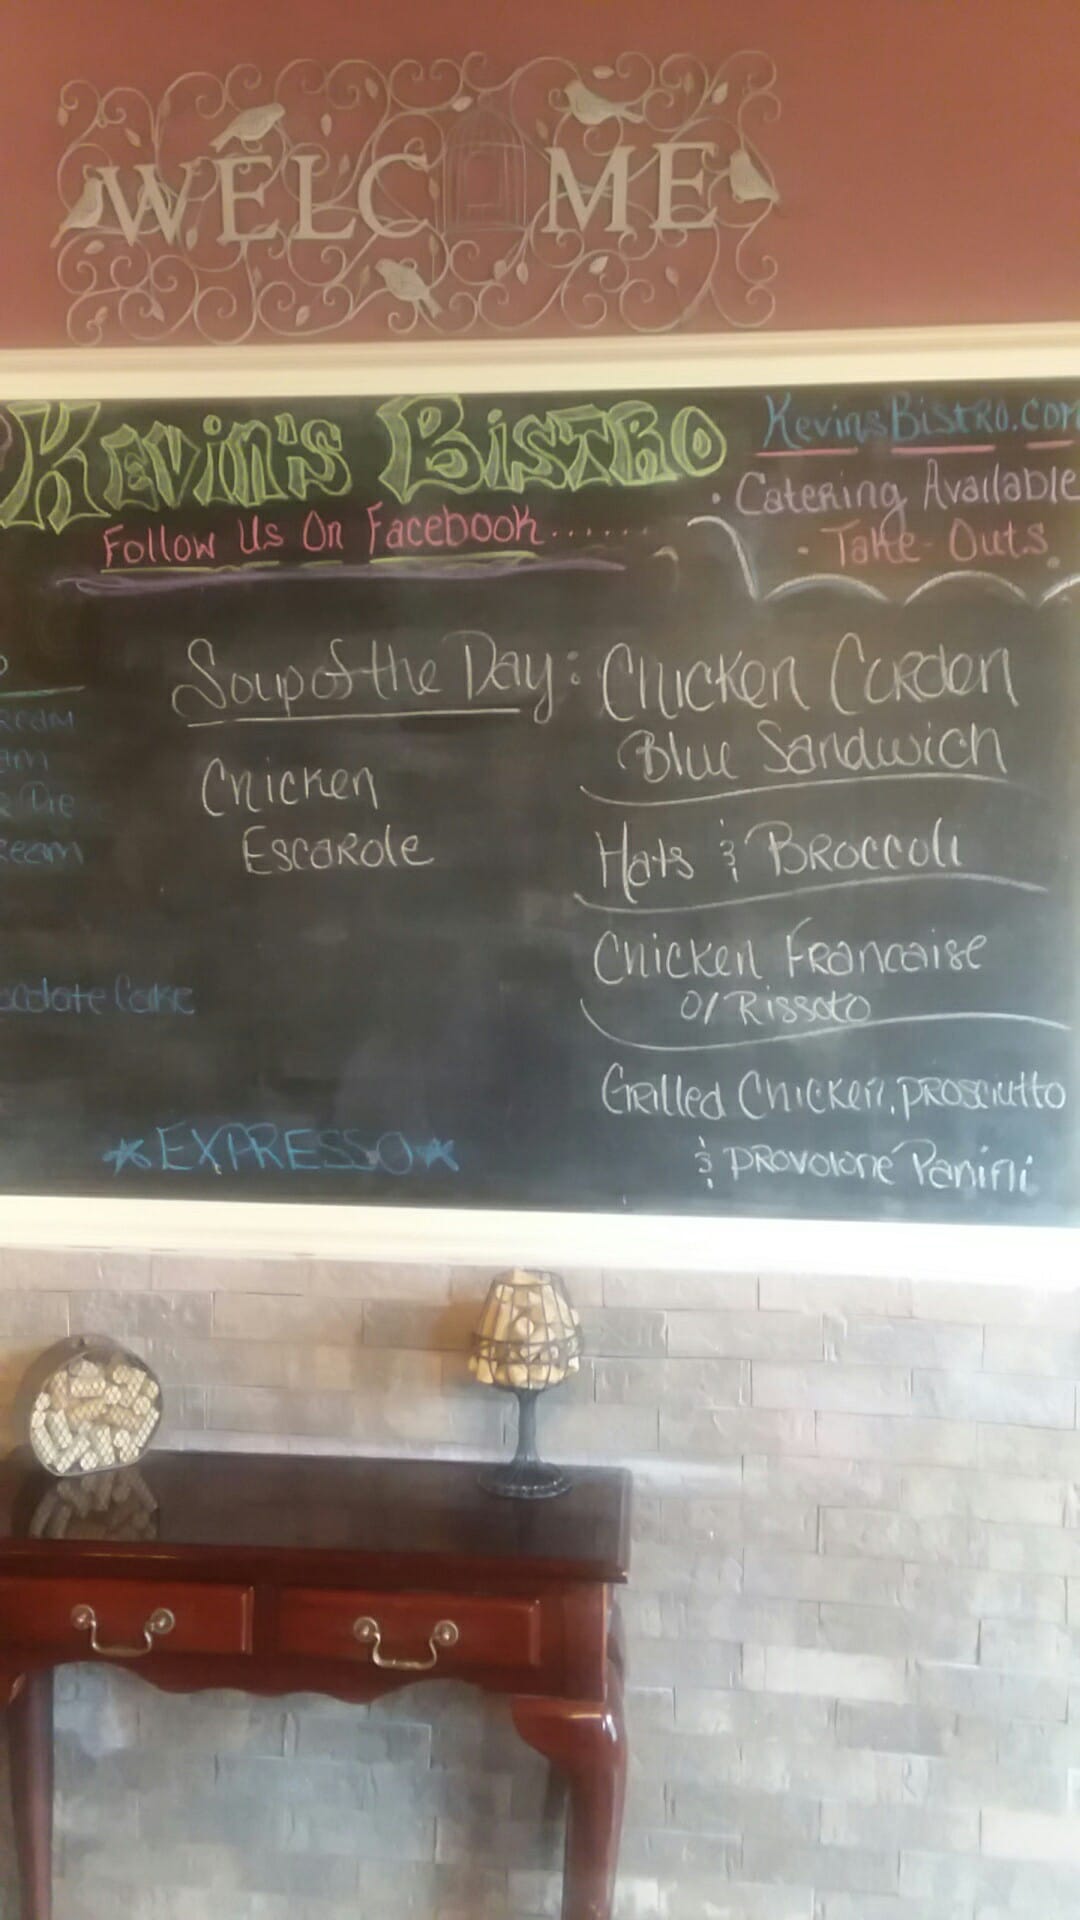 WELCOME
Kevin's Bistro
Follow Us On Facebook......
KevinsBistro.com
• Catering Available
• Take-Outs
Soup of the Day:
Chicken
Escarole
Chicken Corden
Blue Sandwich
Hats & Broccoli
Chicken Francaise
O/Rissoto
Grilled Chicken, prosciutto
& provolone Panini
Pie
Cake
*EXPRESSO*